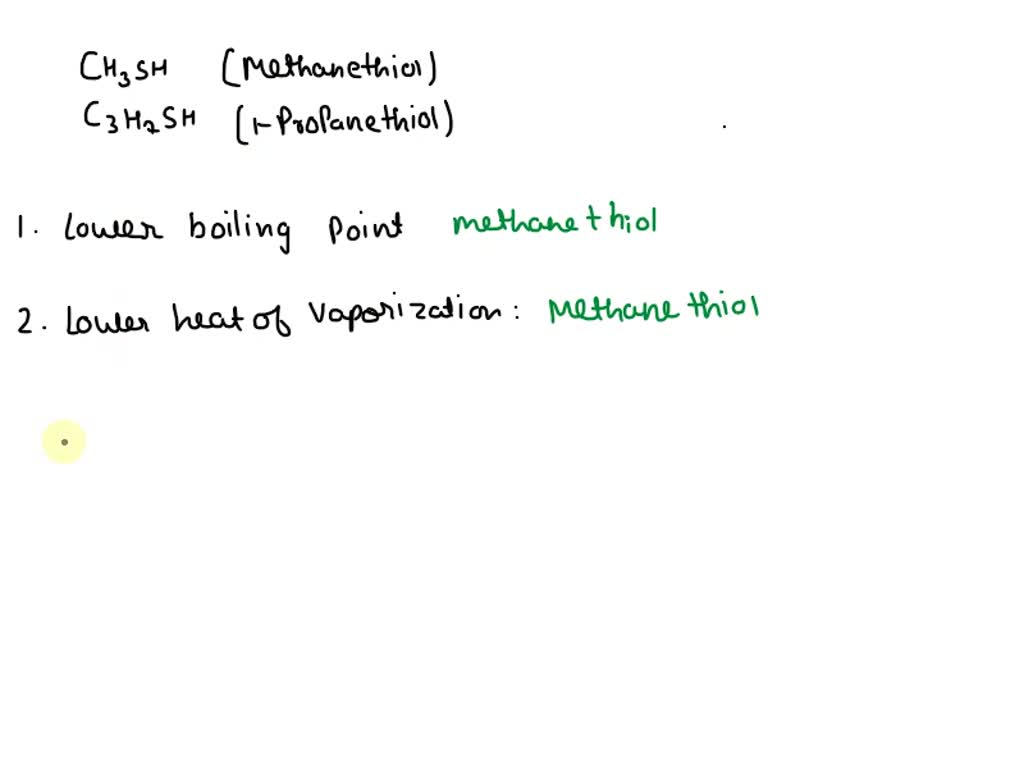 CH3SH (Methanethiol)
C3H7SH (1-Propanethiol)
1. Lower boiling point methanethiol
2. Lower heat of vaporization: Methanethiol